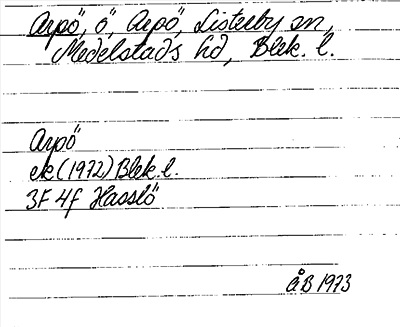 Arpö, ö, Arpö, Listerby sn,
Medelstads hd, Blek. l.
Arpö
ek (1972) Blek. l.
3F 4f Hasslö
ÅB 1973